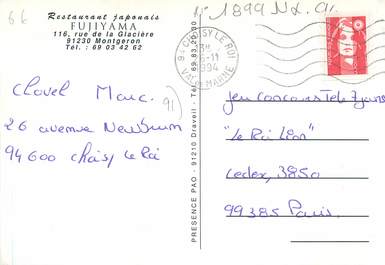 66
Restaurant japonais
FUJIYAMA
116, rue de la Glacière
91230 Montgeron
Tél. : 69 03 42 62
Clavel Marc.
91)
26 avenue Newburn
94600 Choisy le Roi
PRESENCE PAO - 91210 Draveil - Tél. 69 83 20 90
1899
94 CHOISY LE ROI
1994
VAL DE MARNE
jeu concours Télé 7 jours
"Le Roi Lion"
Cedex 2831
99385 Paris.